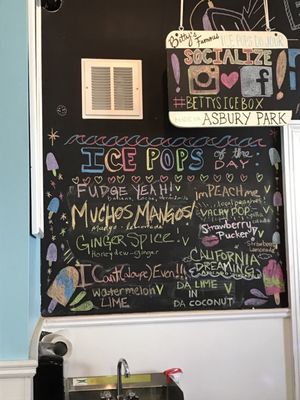 Betty's Famous
ICE POPS DU JOUR
SOCIALIZE
#BETTYSICEBOX
ASBURY PARK
ICE POPS of the DAY
FUDGE YEAH! V
banana, cocoa,
MUCHOS MANGOS!
Mango -
GINGER SPICE! V
Honeydew - ginger
I Can't(aloupe) Even!! V
Watermelon V
LIME
IMPEACHment
local
VACAY POP
Strawberry
Pucker V
Strawberry
Lemonade
CALIFORNIA
DREAMING
DA LIME IN V
DA COCONUT